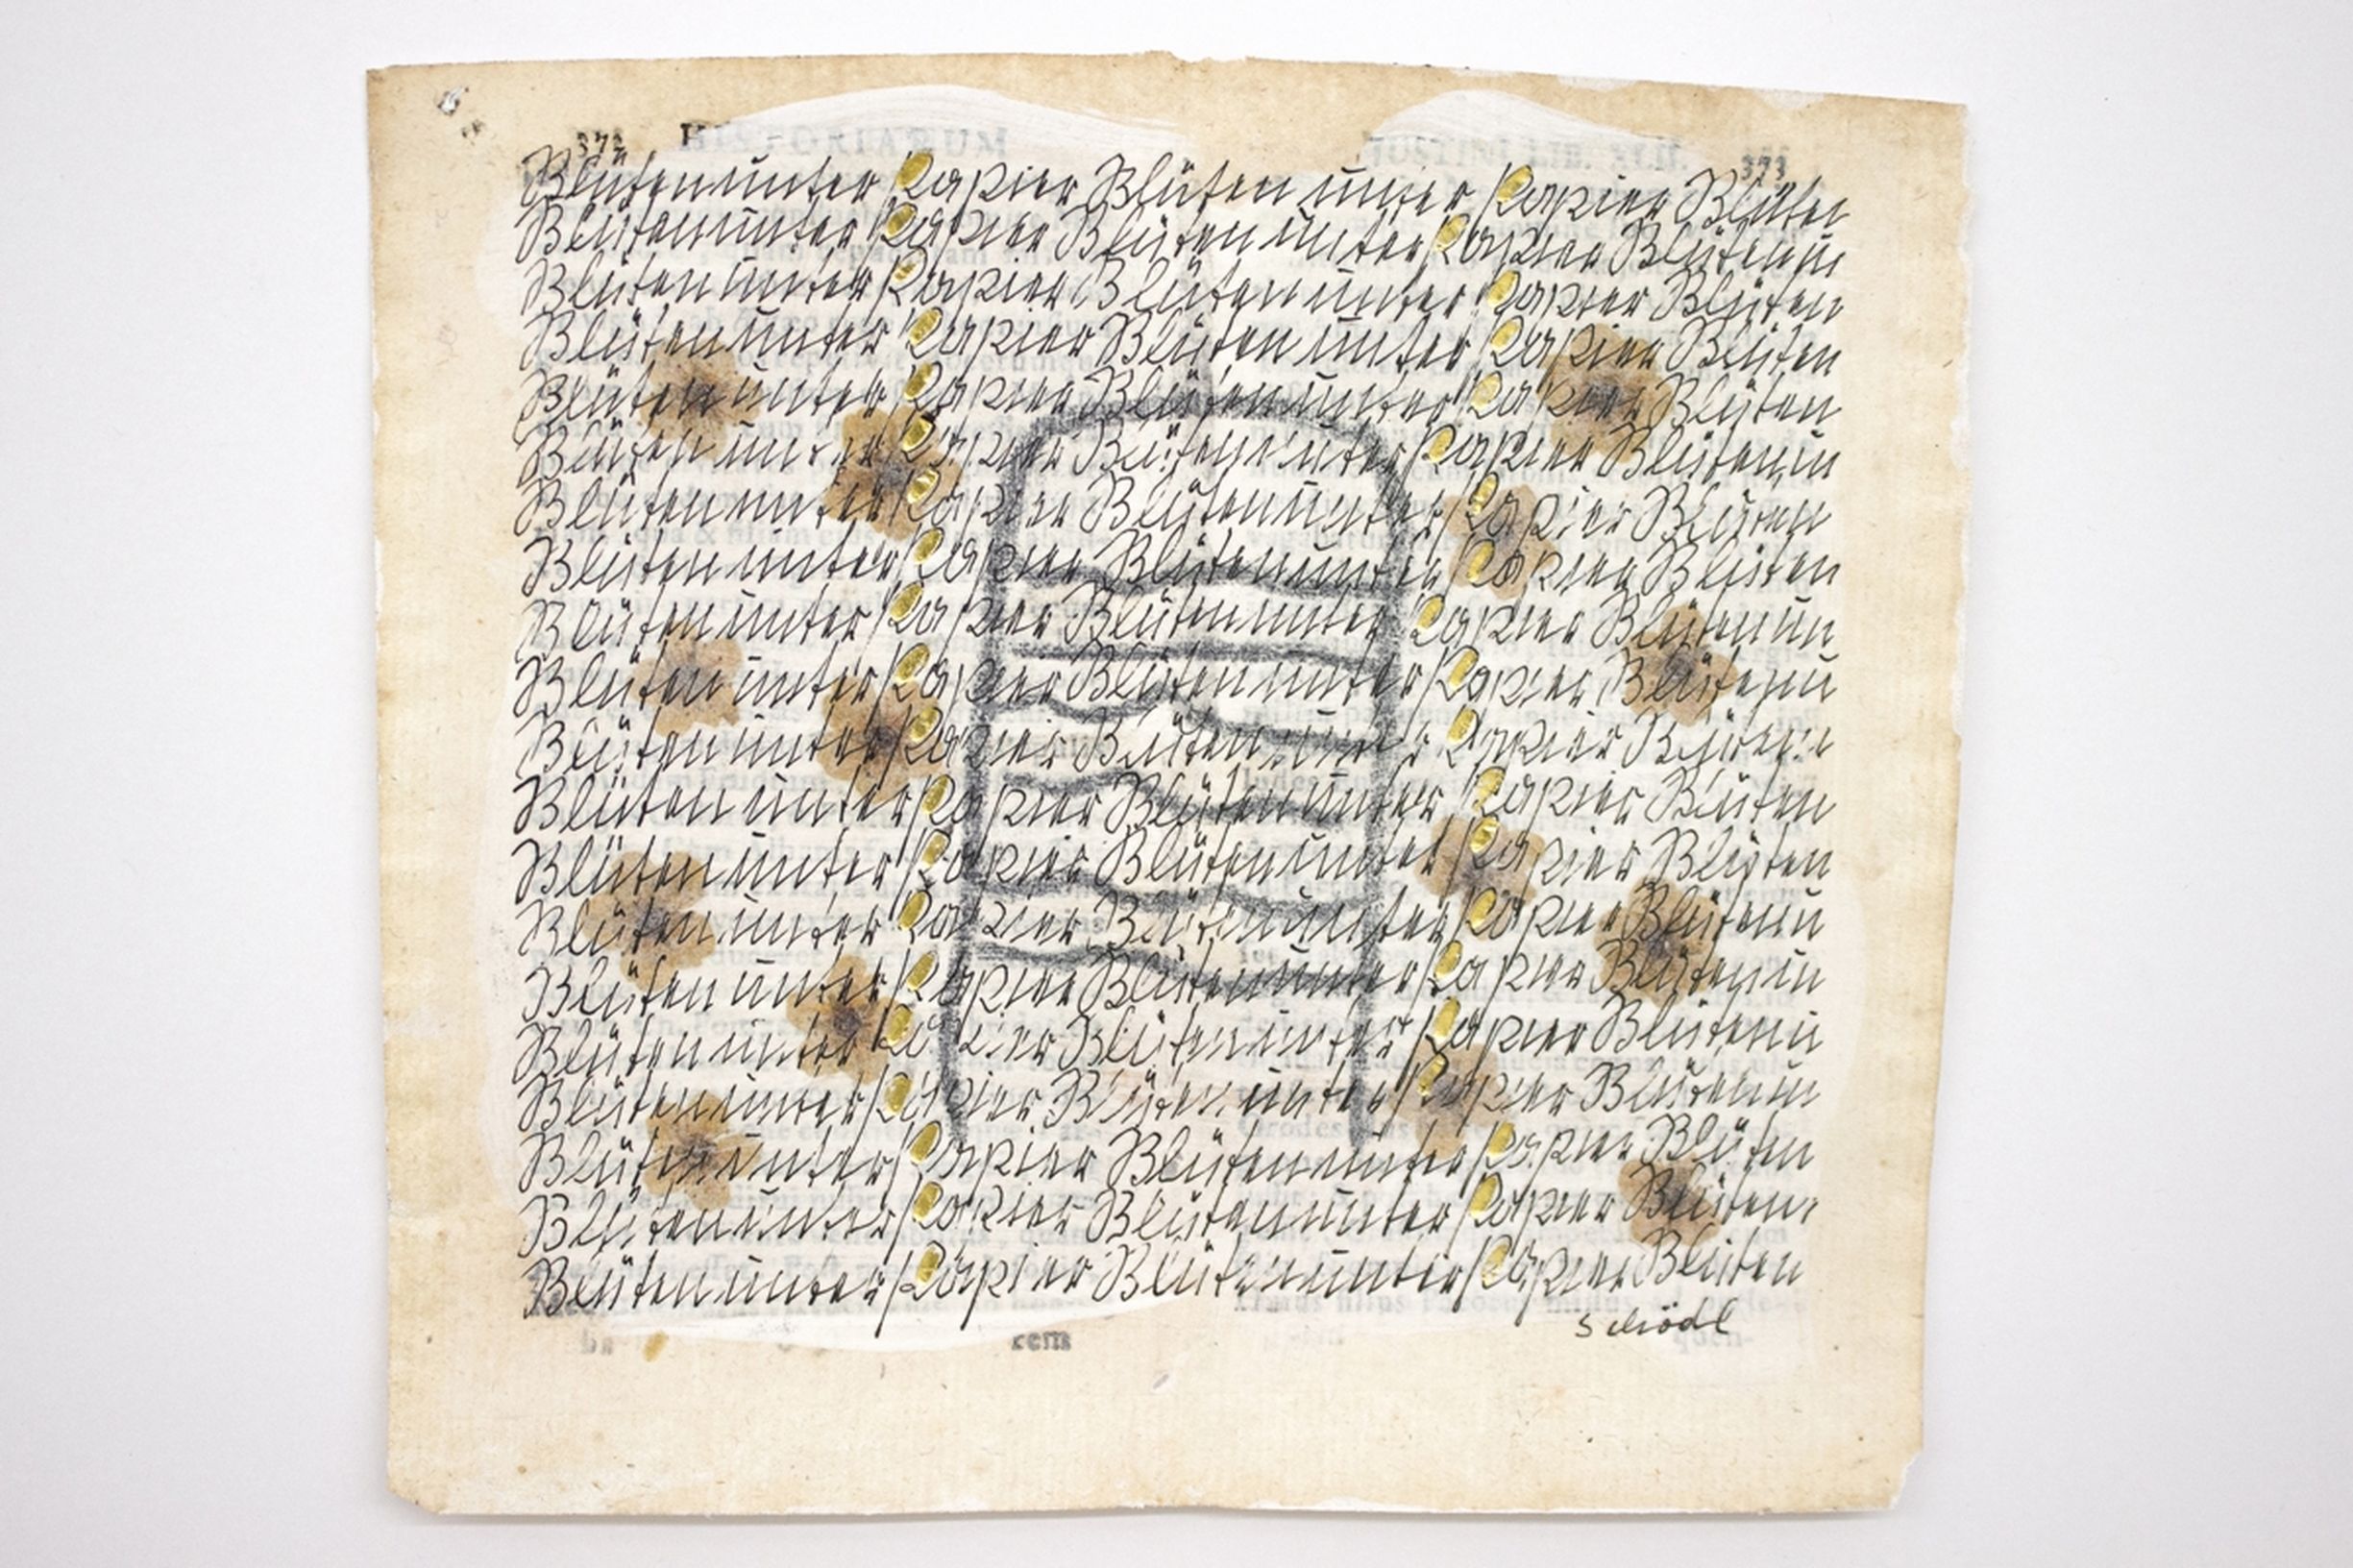 372 HISTORIARUM JUSTINI LIB. XLII. 373
Blüten unter Papier Blüten unter Papier Blüten
Blüten unter Papier Blüten unter Papier Blüten u
Blüten unter Papier Blüten unter Papier Blüten
Blüten unter Papier Blüten unter Papier Blüten
Blüten unter Papier Blüten unter Papier Blüten
Blüten unter Papier Blüten unter Papier Blüten u
Blüten unter Papier Blüten unter Papier Blüten
Blüten unter Papier Blüten unter Papier Blüten
Blüten unter Papier Blüten unter Papier Blüten un
Blüten unter Papier Blüten unter Papier Blüten u
Blüten unter Papier Blüten unter Papier Blüten
Blüten unter Papier Blüten unter Papier Blüten
Blüten unter Papier Blüten unter Papier Blüten
Blüten unter Papier Blüten unter Papier Blüten u
Blüten unter Papier Blüten unter Papier Blüten u
Blüten unter Papier Blüten unter Papier Blüten u
Blüten unter Papier Blüten unter Papier Blüten u
Blüten unter Papier Blüten unter Papier Blüten
Blüten unter Papier Blüten unter Papier Blüten
Blüten unter Papier Blüten unter Papier Blüten
Schödl
cem